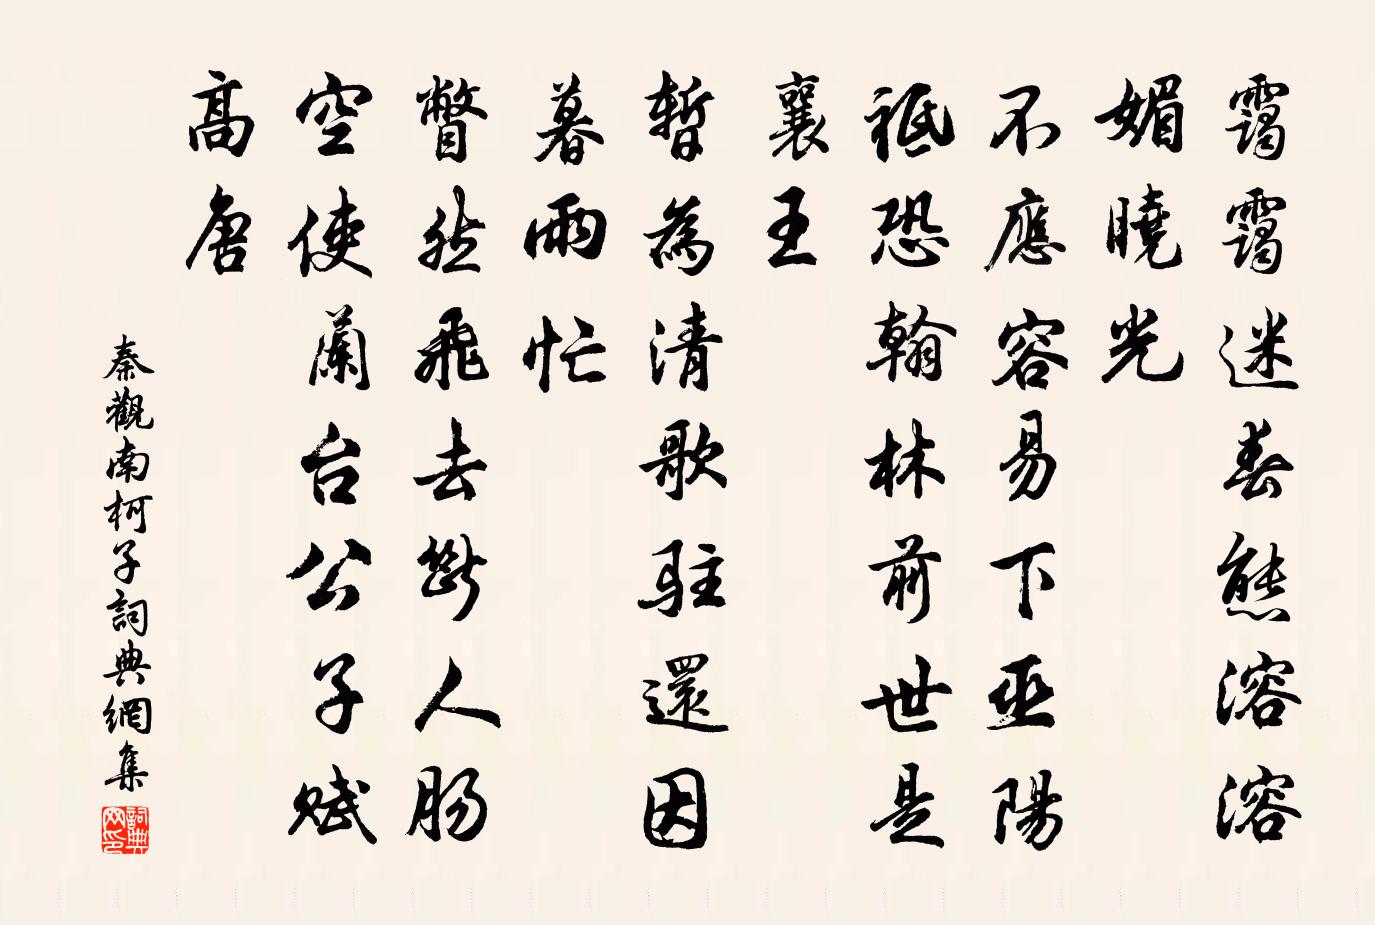 靄靄迷春態溶溶
媚曉光
不應容易下巫陽
祗恐翰林前世是
襄王
暫為清歌駐還因
暮雨忙
瞥然飛去斷人腸
空使蘭台公子賦
高唐
秦觀南柯子詞典網集
詞典
网印